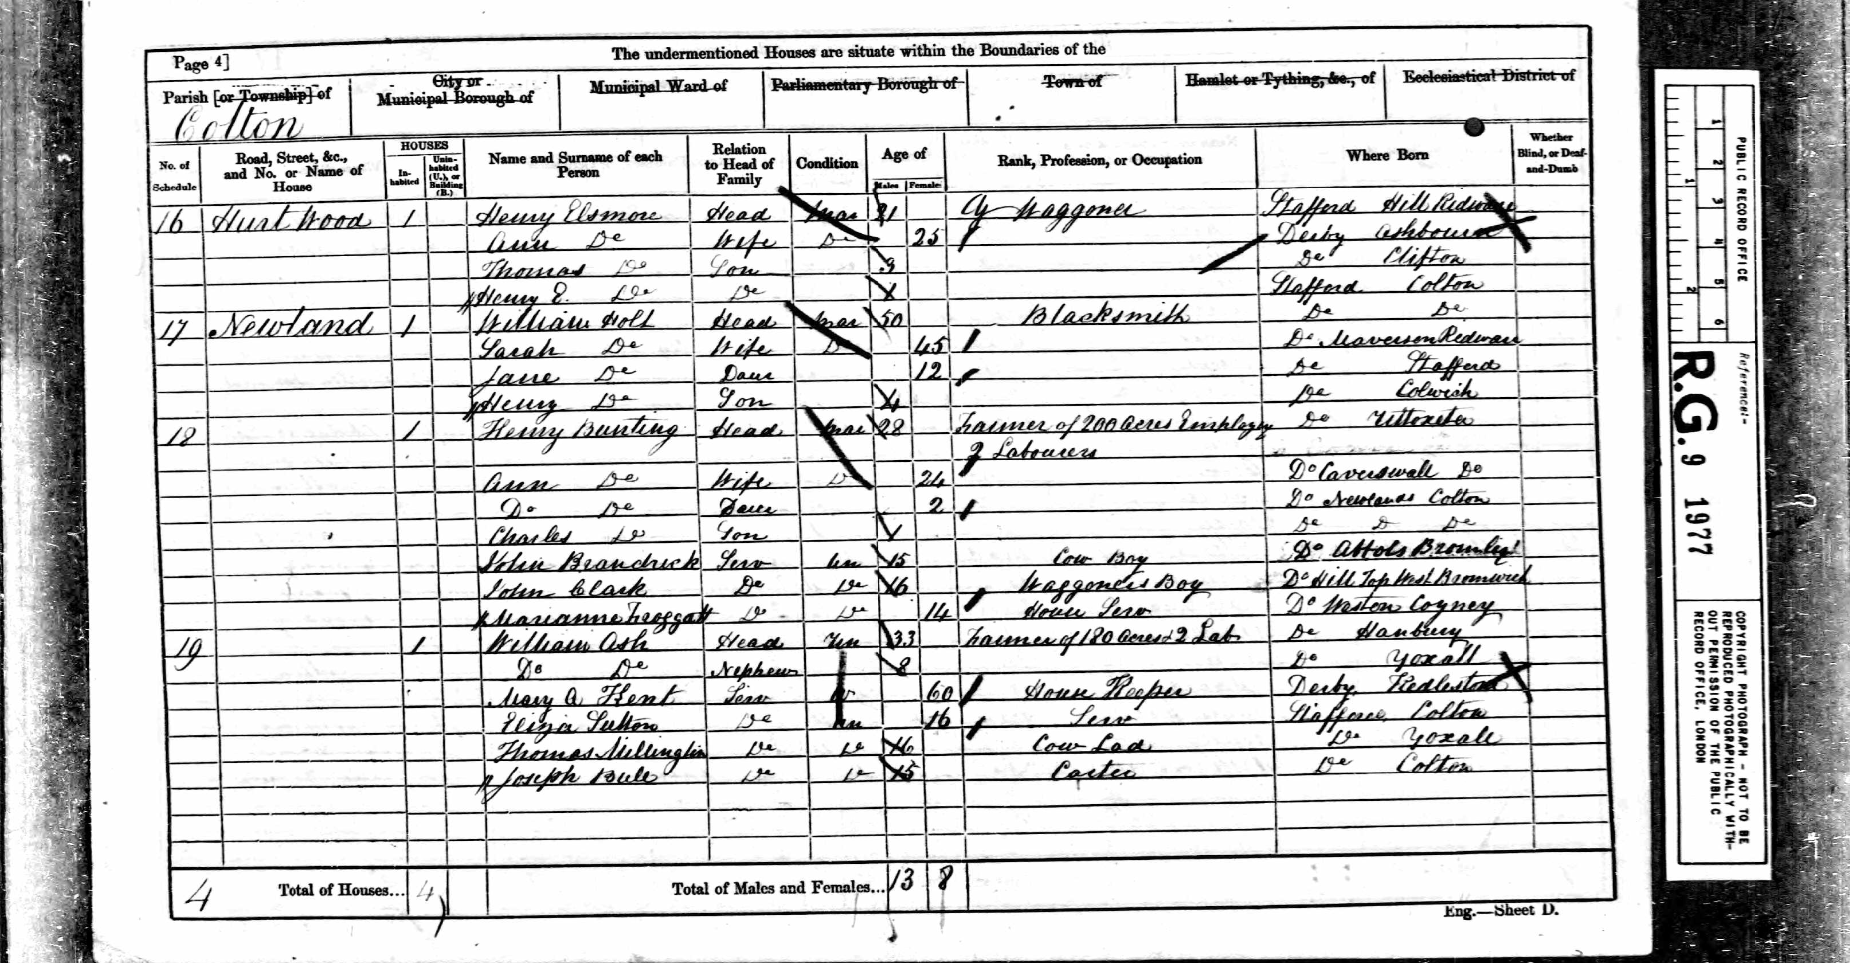 The undermentioned Houses are situate within the Boundaries of the
Page 4]
Parish [or Township] of
Colton
City or
Municipal Borough of
Municipal Ward of
Parliamentary Borough of
Town of
Hamlet or Tything, &c., of
Ecclesiastical District of
No. of Schedule
Road, Street, &c., and No. or Name of House
HOUSES
In-habited
Unin-habited (U.), or Building (B.)
Name and Surname of each Person
Relation to Head of Family
Condition
Age of
Males
Females
Rank, Profession, or Occupation
Where Born
Whether Blind, or Deaf-and-Dumb
16 Hurt Wood 1 Henry Elsmore Head Mar 31 Waggoner Stafford Hill Ridware
Ann Do Wife Do 25 Derby Ashbourn
Thomas Do Son 3 Do Clifton
Henry E. Do Do Stafford Colton
17 Newland 1 William Holt Head Mar 50 Blacksmith Do Do
Sarah Do Wife Do 45 Do Maveson Ridware
Jane Do Daur 12 Do Stafford
Henry Do Son 4 Do Colwich
18 1 Henry Bunting Head Mar 28 Farmer of 200 Acres Employing Do Uttoxeter
2 Labourers
Ann Do Wife Do 24 Do Caverswall Do
Do Do Daur 2 Do Newlands Colton
Charles Do Son Do Do Do
John Brandrick Serv Un 15 Cow Boy Do Abbots Bromley
John Clark Do Do 16 Waggoners Boy Do Hill Top West Bromwich
Marianne Froggatt Do Do 14 House Serv Do Weston Coyney
19 1 William Ash Head Un 33 Farmer of 180 Acres & 2 Lab Do Hanbury
Do Do Nephew 8 Do Yoxall
Mary A Kent Serv W 60 House Keeper Derby Kedleston
Eliza Sutton Do Un 16 Serv Stafford Colton
Thomas Millington Do Do 16 Cow Lad Do Yoxall
Joseph Bull Do Do 15 Carter Do Colton
4 Total of Houses... 4 Total of Males and Females... 13 8
Eng.—Sheet D.
PUBLIC RECORD OFFICE
1 2 3 4 5 6
1 2
Reference:-
R.G. 9 1977
COPYRIGHT PHOTOGRAPH - NOT TO BE REPRODUCED PHOTOGRAPHICALLY WITH-OUT PERMISSION OF THE PUBLIC RECORD OFFICE, LONDON